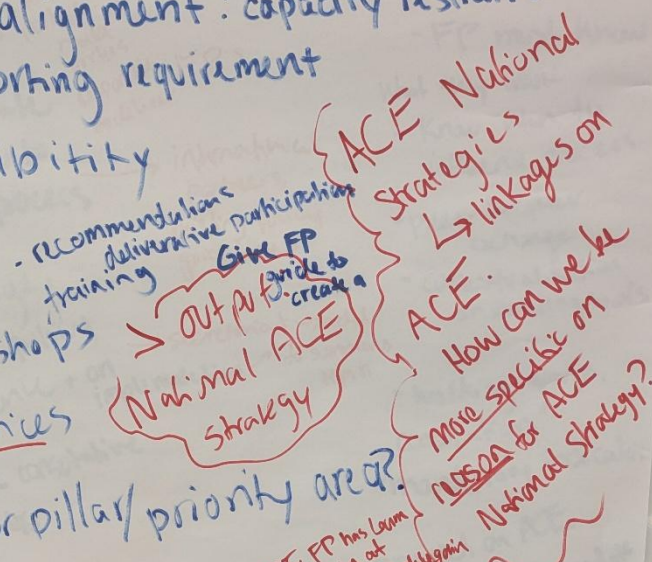 alignment: capacity
orting requirement
ibitity
- recommendations
deliverative participation
training
Give FP
guide to
create a
shops
> output:
National ACE
strategy
ices
r pillar/priority area?
ACE National
Strategies
↳ linkages on
ACE.
How can we be
more specific on
reason for ACE
National Strategy?
FP has